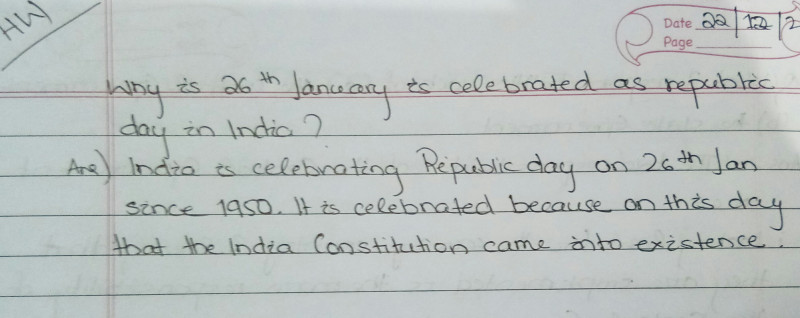 HW
Date 22/12/2
Page
Why is 26th January is celebrated as republic
day in India?
Ans) India is celebrating Republic day on 26th Jan
since 1950. It is celebrated because on this day
that the India Constitution came into existence.